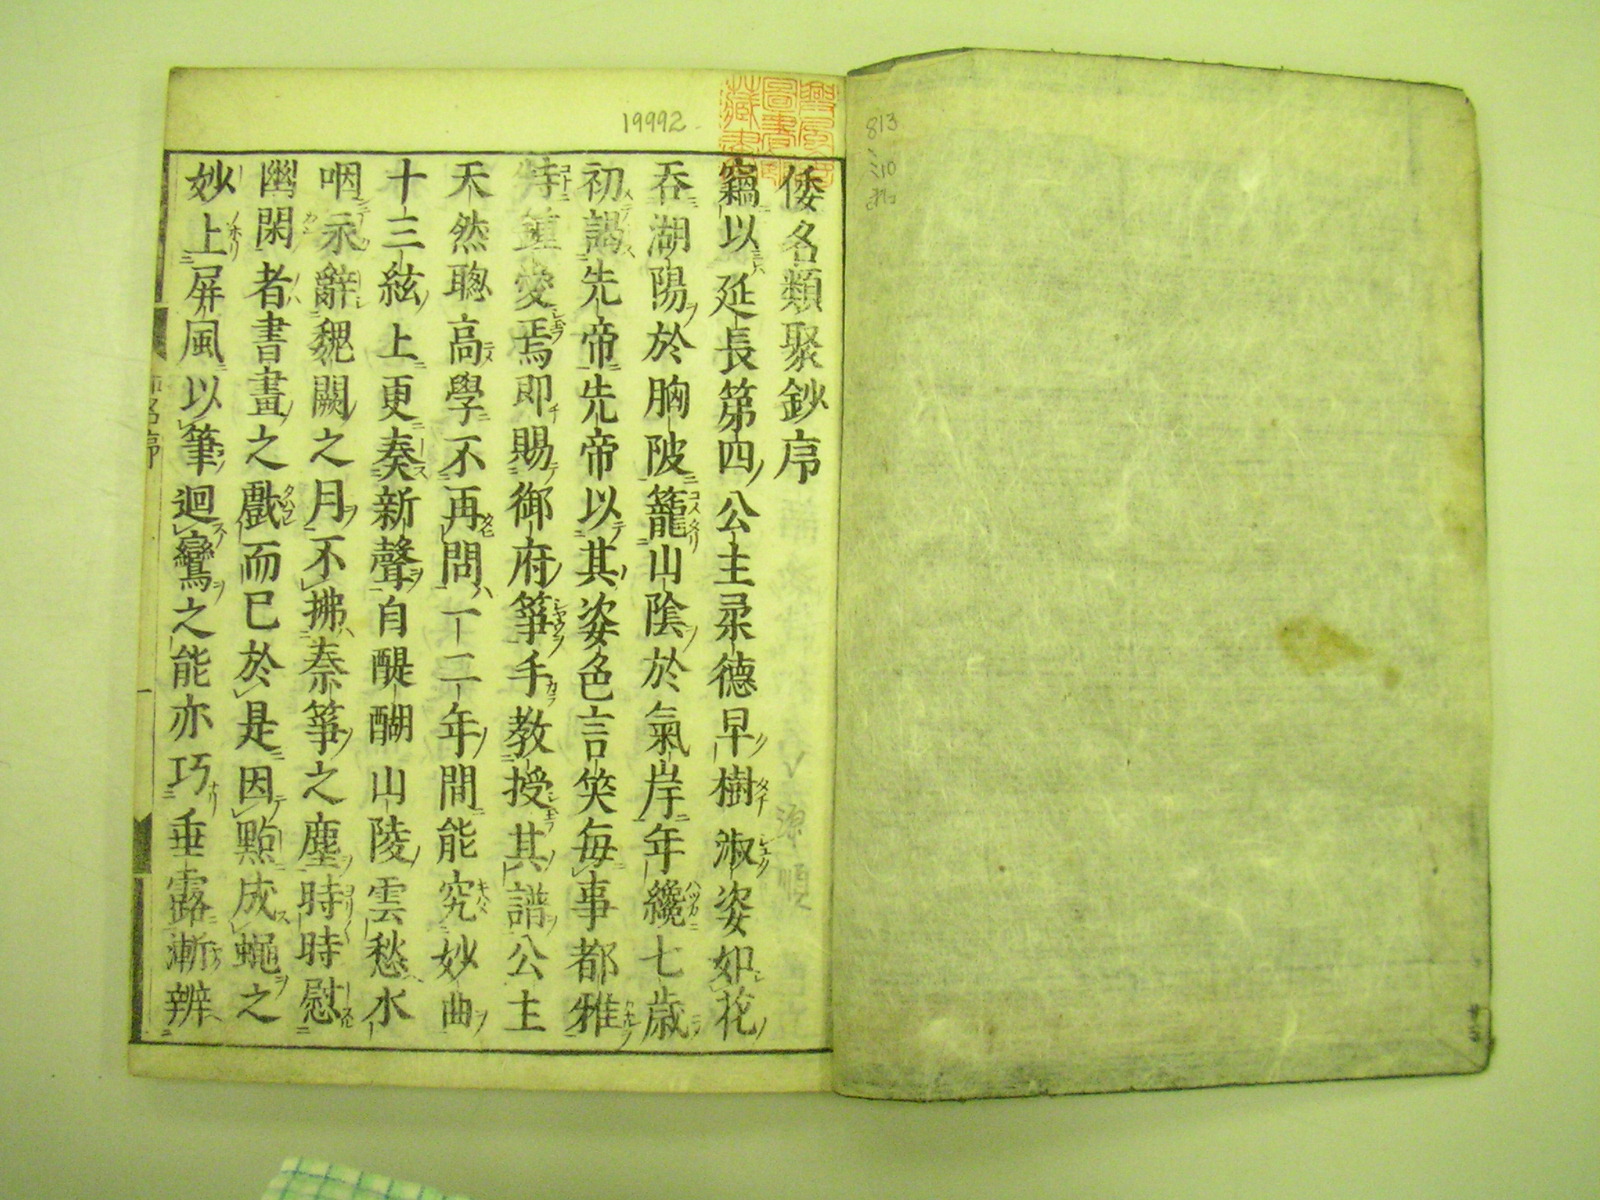 倭名類聚鈔序
竊以延長第四公主柔德早樹淑姿如花
吞湖陽於胸陂籠山陰於氣岸年纔七歲
初謁先帝先帝以其姿色言笑每事都雅
特鍾愛焉即賜御府箏手教授其譜公主
天然聰高學不再問一二年間能究妙曲
十三絃上更奏新聲自醍醐山陵雲愁水
咽永辭魏闕之月不拂秦箏之塵時時慰
幽閑者書畫之戲而已於是因點成蠅之
妙上屏風以筆迴鸞之能亦巧垂露漸辨
19992
813
10